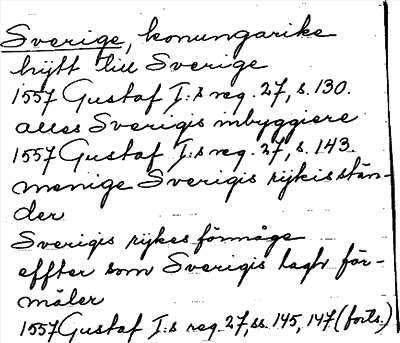 Sverige, konungarike
hijtt till Sverige
1557 Gustaf I:s reg. 27, s. 130.
alles Sverigis inbyggiere
1557 Gustaf I:s reg. 27, s. 143.
menige Sverigis rijkis stän-
der
Sverigis rijkes förmåge
effter som Sverigis lagh för-
mäler
1557 Gustaf I:s reg. 27, ss. 145, 147 (forts.)